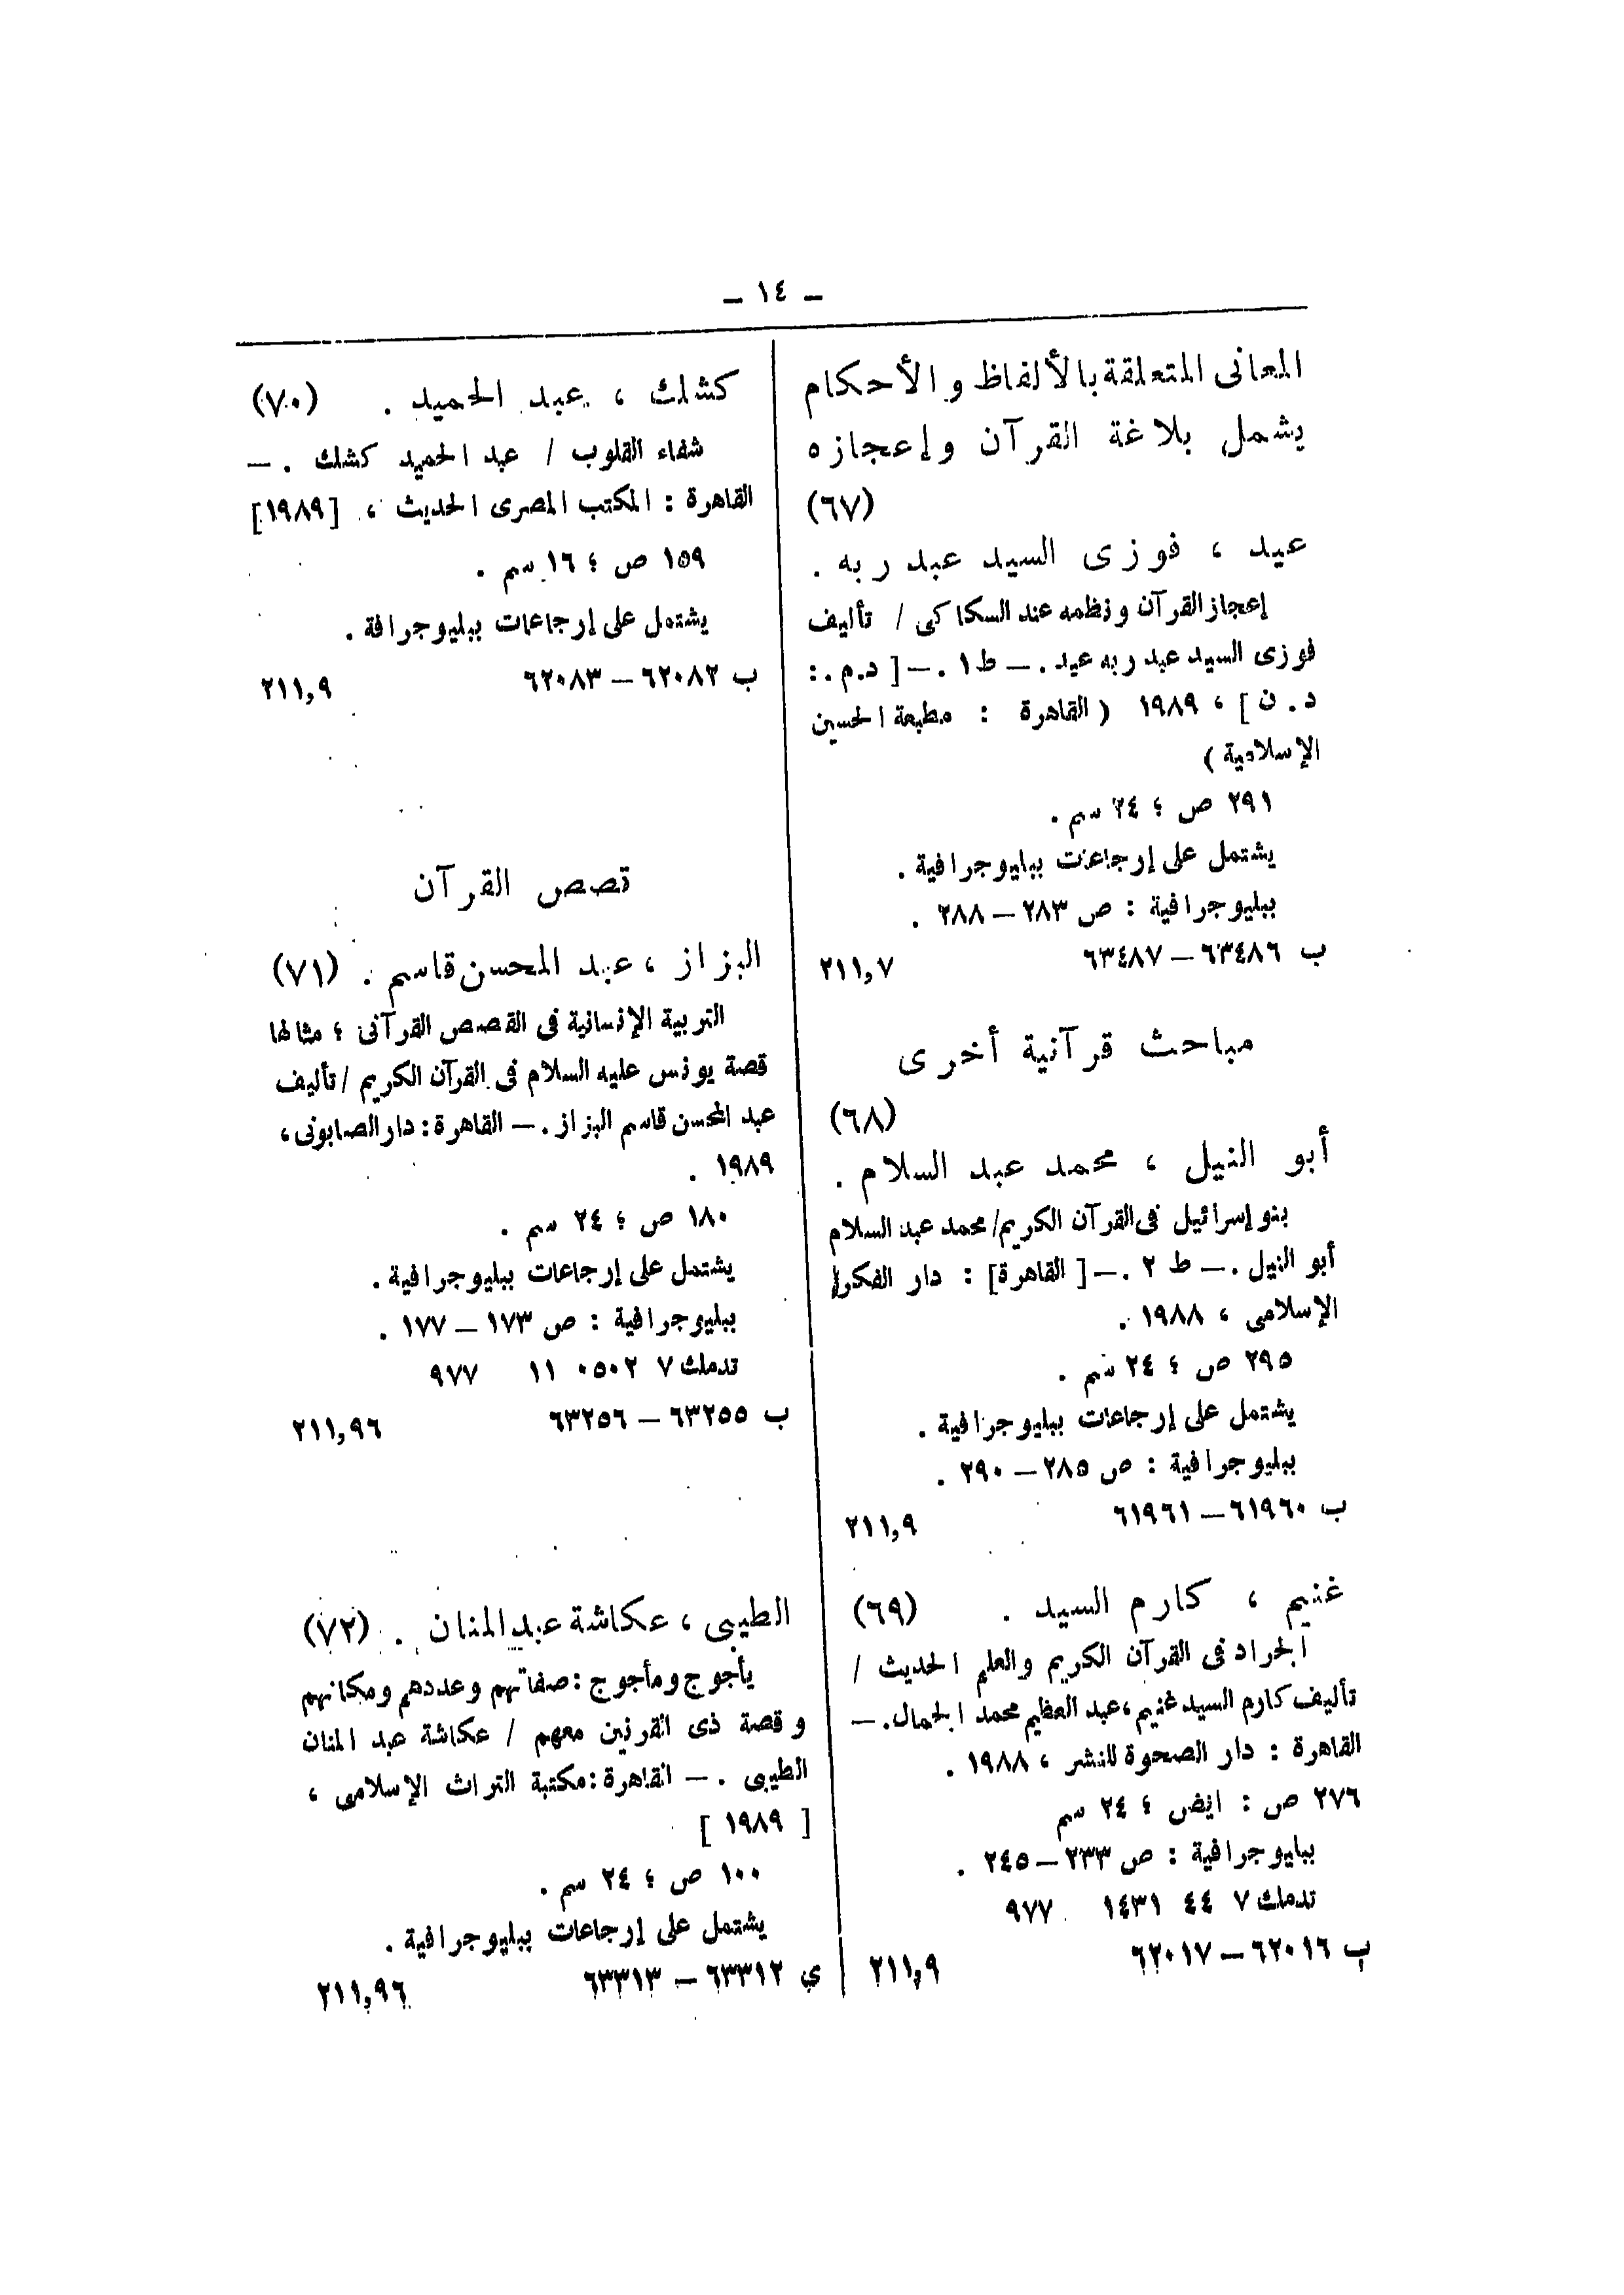 ـ ١٤ ـ
المعانى المتعلقة بالألفاظ والأحكام
يشمل بلاغة القرآن وإعجازه
(٦٧)
عيد ، فوزى السيد عبد ربه .
إعجاز القرآن ونظمه عند السكاكى / تأليف
فوزى السيد عبد ربه عيد . ـ ط ١ . ـ [ د.م. :
د . ن ] ، ١٩٨٩ ( القاهرة : مطبعة الحسين
الإسلامية )
٢٩١ ص ؛ ٢٤ سم .
يشتمل على إرجاعات ببليوجرافية .
ببليوجرافية : ص ٢٨٣ ـ ٢٨٨ .
ب ٦٣٤٨٦ ـ ٦٣٤٨٧ ٢١١,٧
مباحث قرآنية أخرى
(٦٨)
أبو النيل ، محمد عبد السلام .
بنو إسرائيل فى القرآن الكريم / محمد عبد السلام
أبو النيل . ـ ط ٢ . ـ [ القاهرة ] : دار الفكر
الإسلامى ، ١٩٨٨ .
٢٩٥ ص ؛ ٢٤ سم .
يشتمل على إرجاعات ببليوجرافية .
ببليوجرافية : ص ٢٨٥ ـ ٢٩٠ .
ب ٦١٩٦٠ ـ ٦١٩٦١ ٢١١,٩
غنيم ، كارم السيد . (٦٩)
الجراد فى القرآن الكريم والعلم الحديث /
تأليف كارم السيد غنيم ، عبد العظيم محمد الجمال . ـ
القاهرة : دار الصحوة للنشر ، ١٩٨٨ .
٢٧٦ ص : ايض ؛ ٢٤ سم
ببليوجرافية : ص ٢٣٣ ـ ٢٤٥ .
تدمك ٧ ٤٤ ١٤٣١ ٩٧٧
ب ٦٢٠١٦ ـ ٦٢٠١٧ ٢١١,٩
كشك ، عبد الحميد . (٧٠)
شفاء القلوب / عبد الحميد كشك . ـ
القاهرة : المكتب المصرى الحديث ، [١٩٨٩]
١٥٩ ص ؛ ١٦ سم .
يشتمل على إرجاعات ببليوجرافة .
ب ٦٢٠٨٢ ـ ٦٢٠٨٣ ٢١١,٩
قصص القرآن
البزاز ، عبد المحسن قاسم . (٧١)
التربية الإنسانية فى القصص القرآنى ؛ مثالها
قصة يونس عليه السلام فى القرآن الكريم / تأليف
عبد المحسن قاسم البزاز . ـ القاهرة : دار الصابونى ،
١٩٨٩ .
١٨٠ ص ؛ ٢٤ سم .
يشتمل على إرجاعات ببليوجرافية .
ببليوجرافية : ص ١٧٣ ـ ١٧٧ .
تدمك ٧ ٠٥٠٢ ١١ ٩٧٧
ب ٦٣٢٥٥ ـ ٦٣٢٥٦ ٢١١,٩٦
الطيبى ، عكاشة عبد المنان . (٧٢)
يأجوج ومأجوج : صفاتهم وعددهم ومكانهم
وقصة ذى القرنين معهم / عكاشة عبد المنان
الطيبى . ـ القاهرة : مكتبة التراث الإسلامى ،
[ ١٩٨٩ ]
١٠٠ ص ؛ ٢٤ سم .
يشتمل على إرجاعات ببليوجرافية .
ي ٦٣٣١٢ ـ ٦٣٣١٣ ٢١١,٩٦